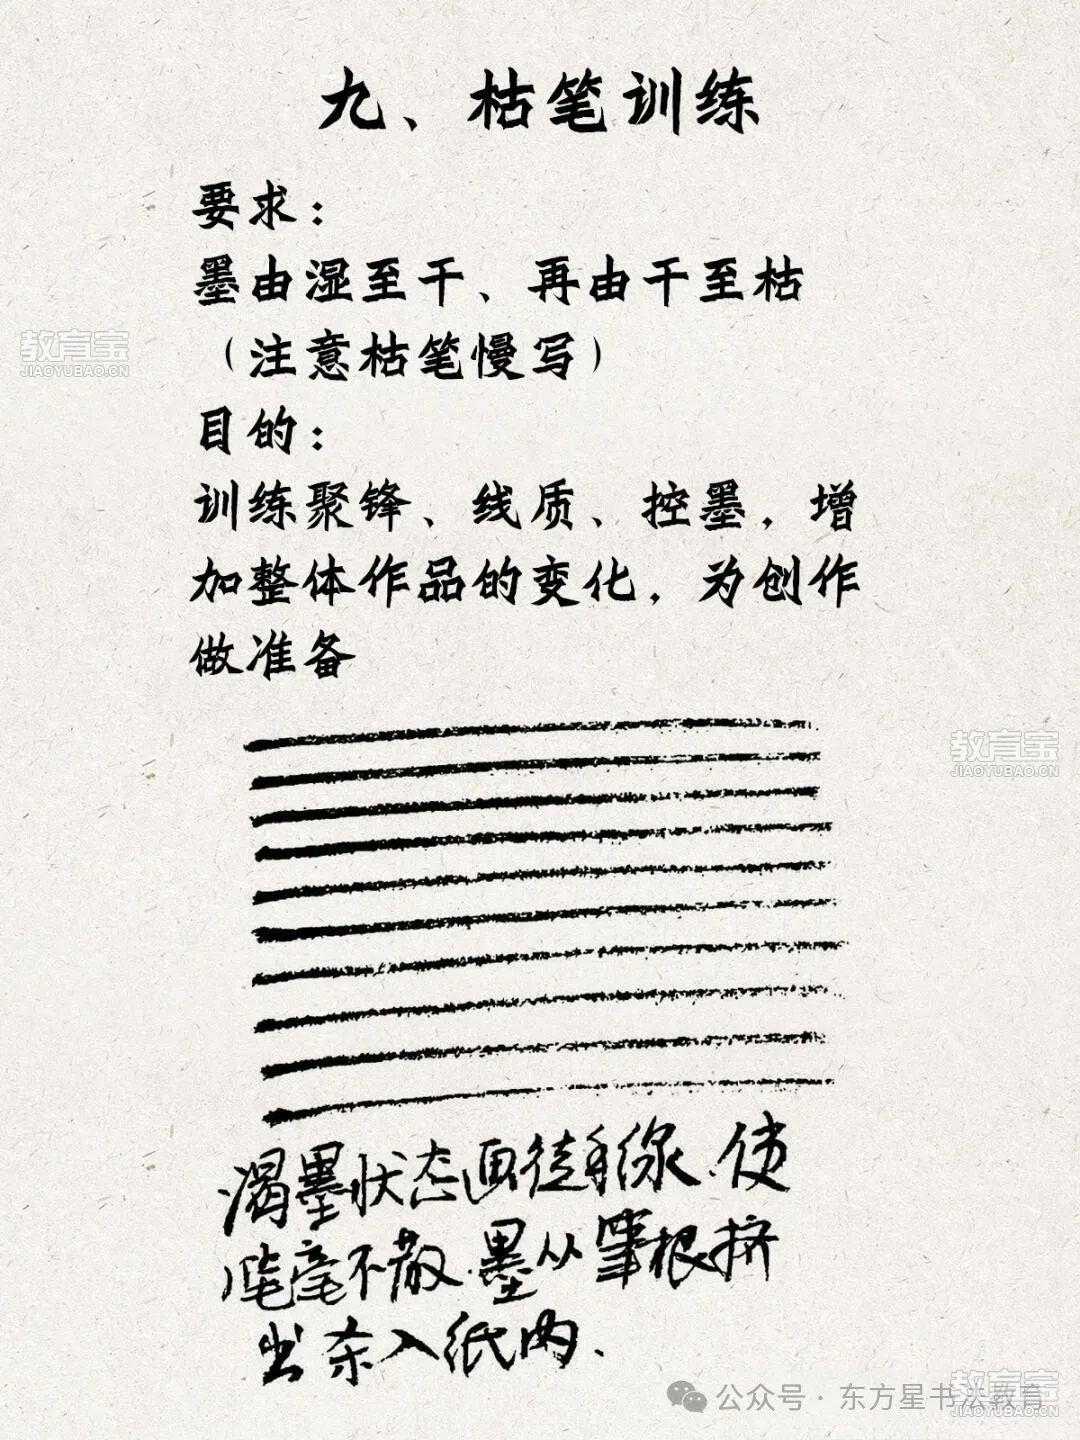 九、枯笔训练
要求：
墨由湿至干、再由干至枯
（注意枯笔慢写）
目的：
训练聚锋、线质、控墨，增
加整体作品的变化，为创作
做准备
教育宝
JIAOYUBAO.CN
教育宝
JIAOYUBAO.CN
渴墨状态画徒手线.使
笔毫不散.墨从筆根挤
出杀入纸内.
教育宝
JIAOYUBAO.CN
公众号·东方星书法教育